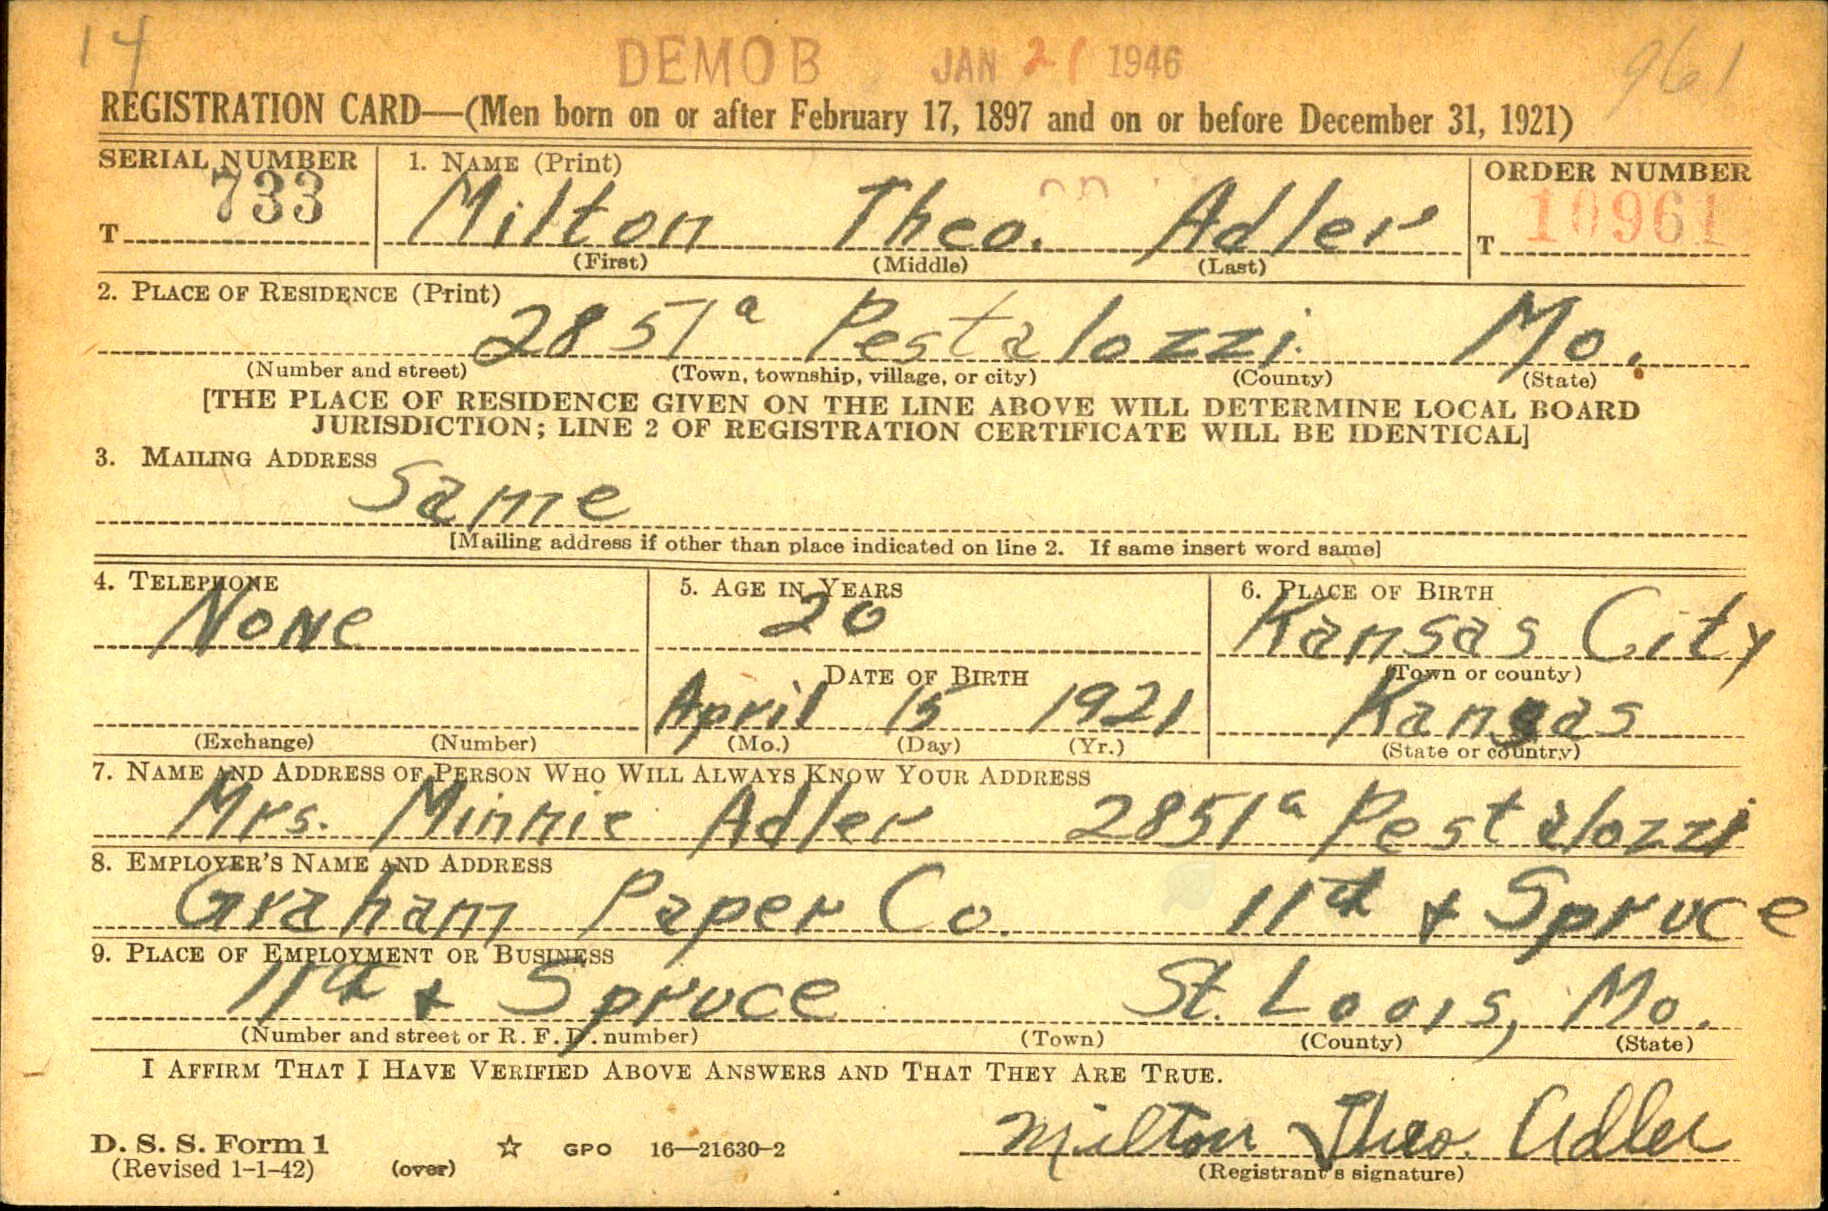 14 DEMOB JAN 21 1946 961
REGISTRATION CARD—(Men born on or after February 17, 1897 and on or before December 31, 1921)
SERIAL NUMBER 1. NAME (Print) ORDER NUMBER
T 733 Milton Theo. Adler T 10961
(First) (Middle) (Last)
2. PLACE OF RESIDENCE (Print)
2851a Pestalozzi Mo.
(Number and street) (Town, township, village, or city) (County) (State)
[THE PLACE OF RESIDENCE GIVEN ON THE LINE ABOVE WILL DETERMINE LOCAL BOARD
JURISDICTION; LINE 2 OF REGISTRATION CERTIFICATE WILL BE IDENTICAL]
3. MAILING ADDRESS
Same
[Mailing address if other than place indicated on line 2. If same insert word same]
4. TELEPHONE 5. AGE IN YEARS 6. PLACE OF BIRTH
None 20 Kansas City
DATE OF BIRTH (Town or county)
April 15 1921 Kansas
(Exchange) (Number) (Mo.) (Day) (Yr.) (State or country)
7. NAME AND ADDRESS OF PERSON WHO WILL ALWAYS KNOW YOUR ADDRESS
Mrs. Minnie Adler 2851a Pestalozzi
8. EMPLOYER'S NAME AND ADDRESS
Graham Paper Co. 11th + Spruce
9. PLACE OF EMPLOYMENT OR BUSINESS
11th + Spruce St. Loois, Mo.
(Number and street or R. F. D. number) (Town) (County) (State)
I AFFIRM THAT I HAVE VERIFIED ABOVE ANSWERS AND THAT THEY ARE TRUE.
D. S. S. Form 1 ☆ GPO 16—21630-2 Milton Theo. Adler
(Revised 1-1-42) (over) (Registrant's signature)